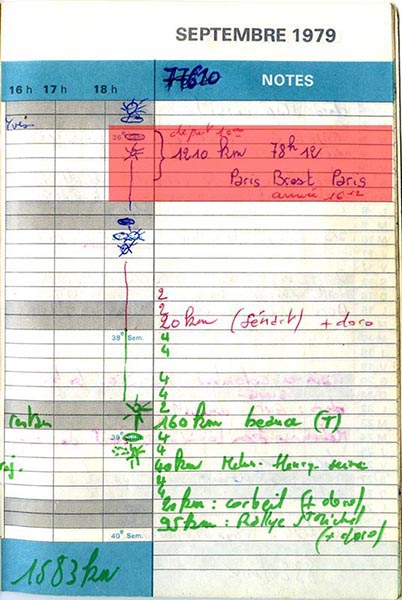 SEPTEMBRE 1979
16 h 17 h 18 h 77610 NOTES
Yvis
départ 16°°
36° 1210 km 78h12
Paris Brest Paris
arrivée 16 12
2
2
20 km (Sénart) + doro
38° Sem. 4
4
4
4
2
160 km beauce (T)
39° 4
4
40 km Melun - Heury - seine
4
4
20 km : corbeil (+ doro)
95 km : Rallye St Michel
40° Sem. (+ doro)
1583 km